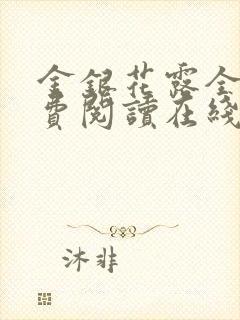 金銀花露全
費閱讀在綫
沐非